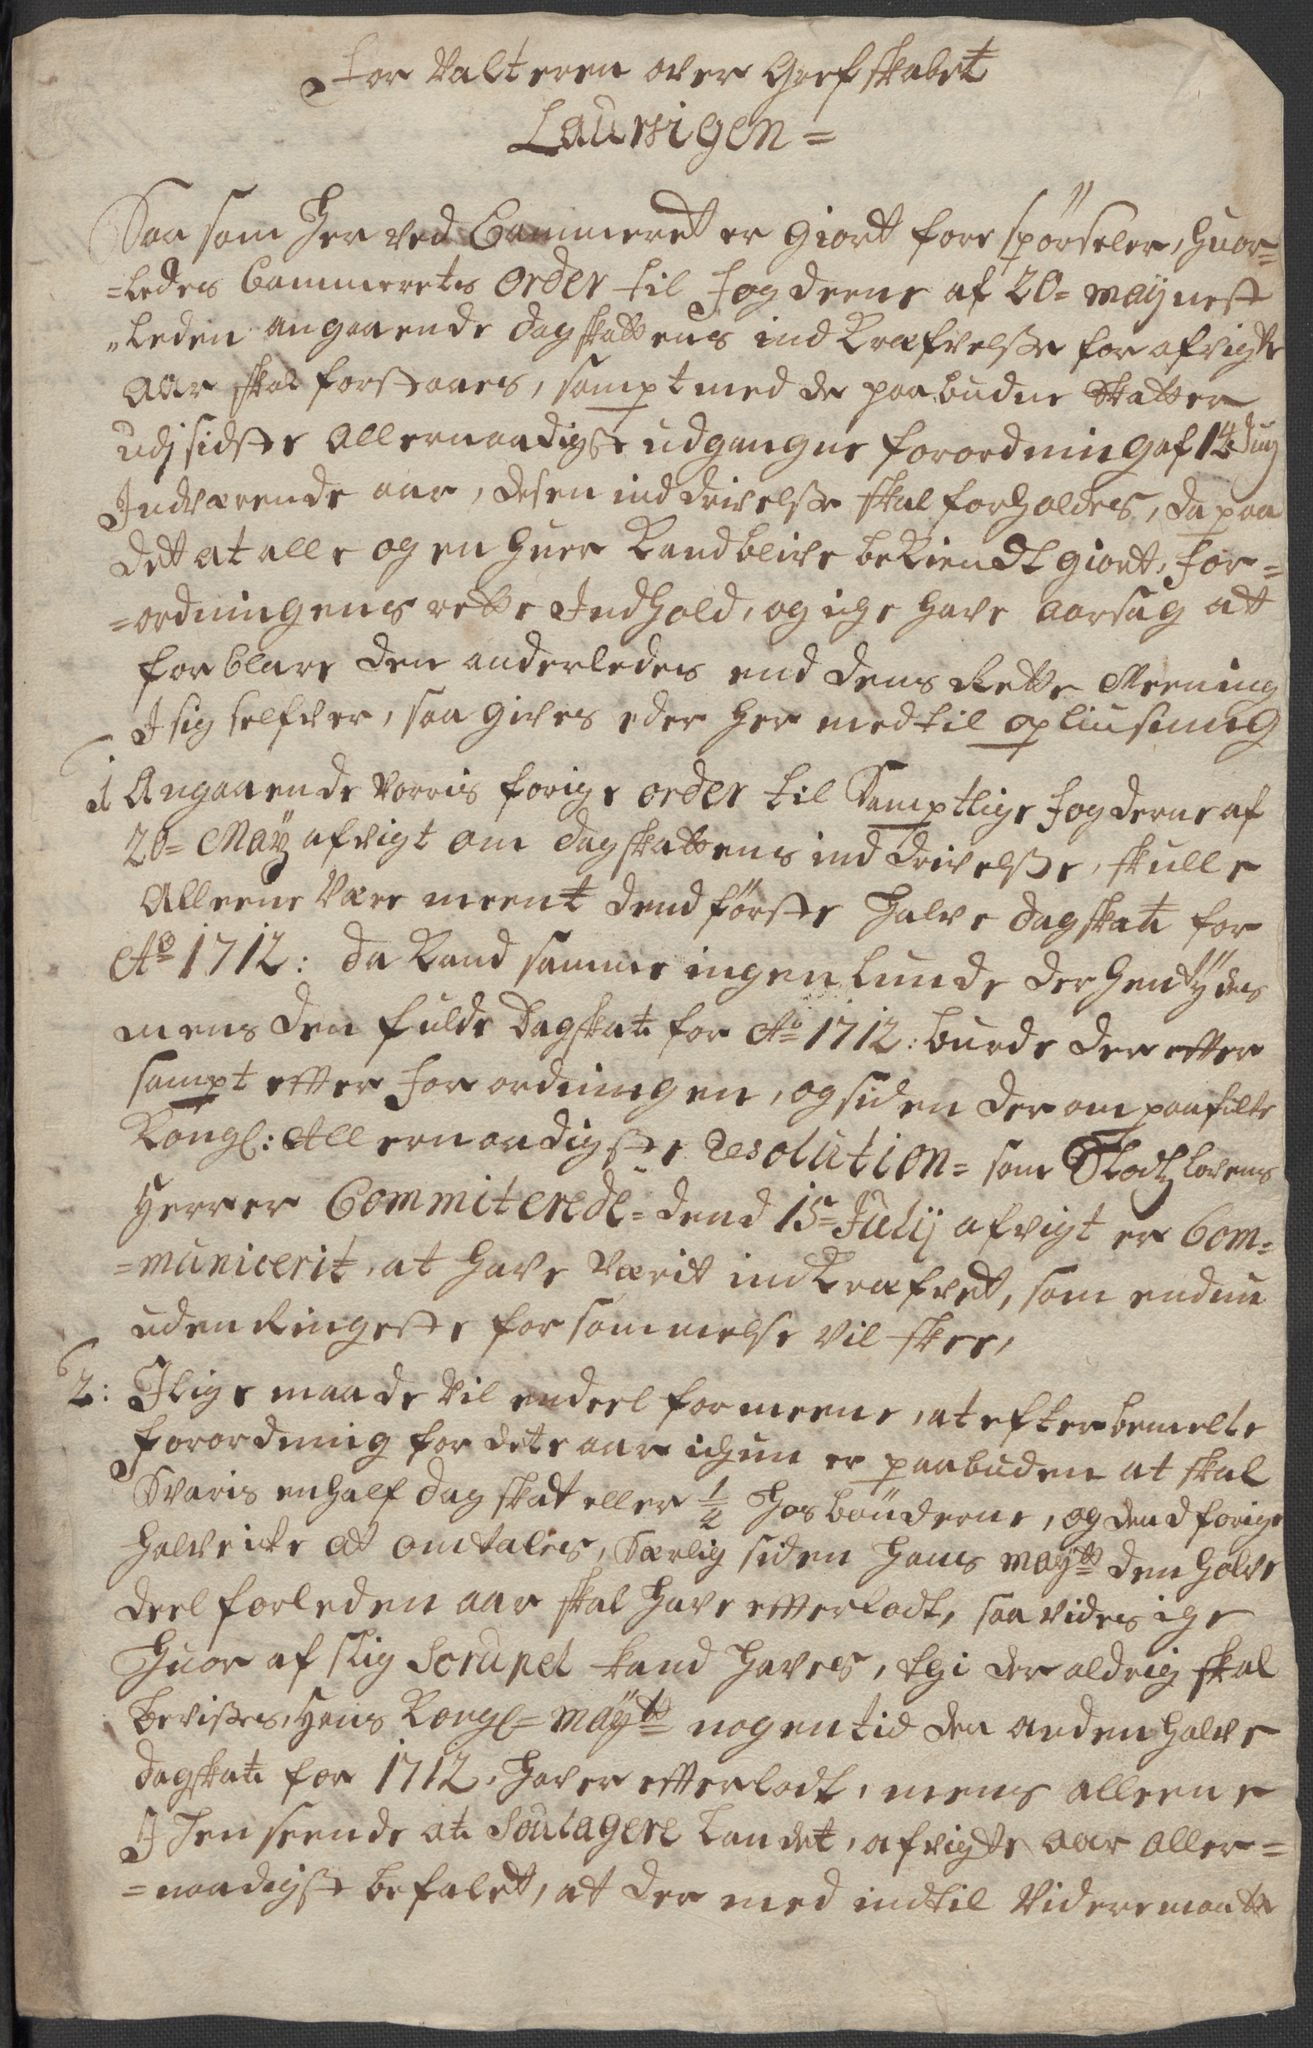 For Valteren over Grefskabet
Laurvigen =
Saa som Her ved Cammeret er giort fore spörseler, huor=
=ledes Cammerets Order til Fogderne af 20= Maÿ nest
"leden angaaende dagskattens ind Kræfvelsse for afvigte
Aar skal forstaaes, sampt med de paabudne Skatter
udj sidste Allernaadigste udgangne forordning af 14 Junj
Indværende aar, desen inddrivelsse skal forholdes, da paa
dett at alle og en huer Kand blive bekiendt giort, for=
=ordningens rette Indhold, og iche have aarsag att
forklare den anderledes end dens Rette Meening
I sig selfver, saa gives eder her med til opliusning
1 Angaaende Vorris forige order til Samptlige Fogderne af
20= Maÿ afvigt om dagskattens ind drivelsse, skulle
Alleene Være meent dend förste halve dagskatt for
Ao 1712: da Kand samme ingenlunde der hentÿdes
mens den fulde Dagskatt for Ao 1712: burde der effter
sampt effter Forordningen, og siden der om paafulte
Kongl: Allernaadigste Resolution= som Slodtzlovens
Herrer Committerede= dend 15= Julij afvigt er Com=
=municerit, at have Værit indkræfvett, som endnu
uden Ringeste forsømmelse Vil skee,
2: I lige maade Vil endeel formeene, at efter bemelte
forordning for dete aar ichun er paabuden at skal
Svaris en half dagskat eller 1/2 Hos bönderne, og dend forige
halve icke at omtales, Særlig siden Hans Maÿtt den halve
deel forleden aar skal have efterladt, saa vides iche
Huor af slig Scrupel kand haves, thi der aldrig skal
bevisses, Hans Kongl= Maÿtt nogen tid den anden halve
dagskatt for 1712, haver effterladt, mens alleene
I Henseende at Soulagere landet, afvigte aar aller=
=naadigst befalet, at der med indtil Videre maatte